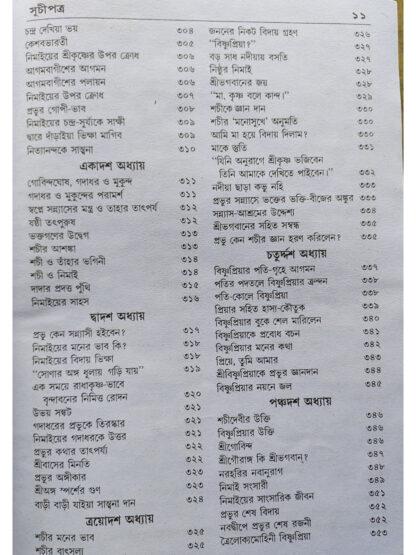 সূচীপত্র
১১
চন্দ্র দেখিয়া ভয় ৩০৪
কেশবভারতী ৩০৫
নিমাইয়ের শ্রীকৃষ্ণের উপর ক্রোধ ৩০৬
আগমবাগীশের আগমন ৩০৬
আগমবাগীশের পলায়ন ৩০৬
নিমাইয়ের উপর ক্রোধ ৩০৭
প্রভুর গোপী-ভাব ৩০৮
নিমাইয়ের চন্দ্র-সূর্য্যকে সাক্ষী ৩০৯
দ্বারে দাঁড়াইয়া ভিক্ষা মাগিব ৩০৯
নিত্যানন্দকে সান্ত্বনা ৩১০
একাদশ অধ্যায়
গোবিন্দঘোষ, গদাধর ও মুকুন্দ ৩১১
গদাধর ও মুকুন্দের পরামর্শ ৩১১
স্বপ্নে সন্ন্যাসের মন্ত্র ও তাহার তাৎপর্য্য ৩১২
ষষ্ঠী তৎপুরুষ ৩১২
ভক্তগণের উদ্বেগ ৩১৩
শচীর আশঙ্কা ৩১৩
শচী ও তাঁহার ভগিনী ৩১৪
শচী ও নিমাই ৩১৪
দাদার প্রদত্ত পুঁথি ৩১৫
নিমাইয়ের সাহস ৩১৬
দ্বাদশ অধ্যায়
প্রভু কেন সন্ন্যাসী হইবেন? ৩১৭
নিমাইয়ের মনের ভাব কি? ৩১৮
নিমাইয়ের বিদায় ভিক্ষা ৩১৮
“সোণার অঙ্গ ধূলায় গড়ি যায়” ৩১৯
এক সময়ে রাধাকৃষ্ণ-ভাবে
বৃন্দাবনের নিমিত্ত রোদন ৩২০
উভয় সঙ্কট ৩২১
গদাধরের প্রভুকে তিরস্কার ৩২১
নিমাইয়ের গদাধরকে উত্তর ৩২১
প্রভুর কথার তাৎপর্য্য ৩২২
শ্রীবাসের মিনতি ৩২৩
প্রভুর অঙ্গীকার ৩২৩
শ্রীঅঙ্গ স্পর্শের গুণ ৩২৩
বাড়ী বাড়ী যাইয়া সান্ত্বনা দান ৩২৪
ত্রয়োদশ অধ্যায়
শচীর মনের ভাব ৩২৫
শচীর বাৎসল্য ৩২৫
জননের নিকট বিদায় গ্রহণ ৩২৬
“বিষ্ণুপ্রিয়া?” ৩২৭
বড় সাধ নদীয়ায় বসতি ৩২৭
নিষ্ঠুর নিমাই ৩২৮
শ্রীভগবানের জয় ৩২৮
“মা, কৃষ্ণ বলে কান্দ।” ৩২৯
শচীকে জ্ঞান দান ৩৩০
শচীর ‘মনোসুখে’ অনুমতি ৩৩০
আমি মা হয়ে বিদায় দিলাম? ৩৩০
মাকে স্তুতি ৩৩১
“যিনি অনুরাগে শ্রীকৃষ্ণ ভজিবেন
তিনি আমাকে দেখিতে পাইবেন।” ৩৩২
নদীয়া ছাড়া কভু নহি ৩৩৩
প্রভুর সন্ন্যাসে ভক্তের ভক্তি-বীজের অঙ্কুর ৩৩৩
সন্ন্যাস-আশ্রমের উদ্দেশ্য ৩৩৪
শ্রীভগবানের সহিত সম্বন্ধ ৩৩৫
প্রভু কেন শচীর জ্ঞান হরণ করিলেন? ৩৩৫
চতুর্দ্দশ অধ্যায়
বিষ্ণুপ্রিয়ার পতি-গৃহে আগমন ৩৩৭
পতির পদতলে বিষ্ণুপ্রিয়ার ক্রন্দন ৩৩৮
পতি-কোলে বিষ্ণুপ্রিয়া ৩৩৮
প্রিয়ার সহিত হাস্য-কৌতুক ৩৩৯
বিষ্ণুপ্রিয়ার বুকে শেল মারিলেন ৩৪০
বিষ্ণুপ্রিয়াকে প্রবোধ বচন ৩৪১
বিষ্ণুপ্রিয়ার মনের কথা ৩৪২
প্রিয়ে, তুমি আমার ৩৪৩
শ্রীবিষ্ণুপ্রিয়াকে প্রভুর জ্ঞানদান ৩৪৪
বিষ্ণুপ্রিয়ার নয়নে জল ৩৪৫
পঞ্চদশ অধ্যায়
শচীদেবীর উক্তি ৩৪৬
বিষ্ণুপ্রিয়ার উক্তি ৩৪৬
শ্রীগোবিন্দ ৩৪৬
শ্রীগৌরাঙ্গ কি শ্রীভগবান্? ৩৪৭
নরহরির নবানুরাগ ৩৪৯
নিমাই সংসারী ৩৫১
নিমাইয়ের সাংসারিক জীবন ৩৫১
প্রভুর শেষ বিদায় ৩৫২
নবদ্বীপে প্রভুর শেষ রজনী ৩৫২
ত্রৈলোক্যমোহিনী বিষ্ণুপ্রিয়া ৩৫৩